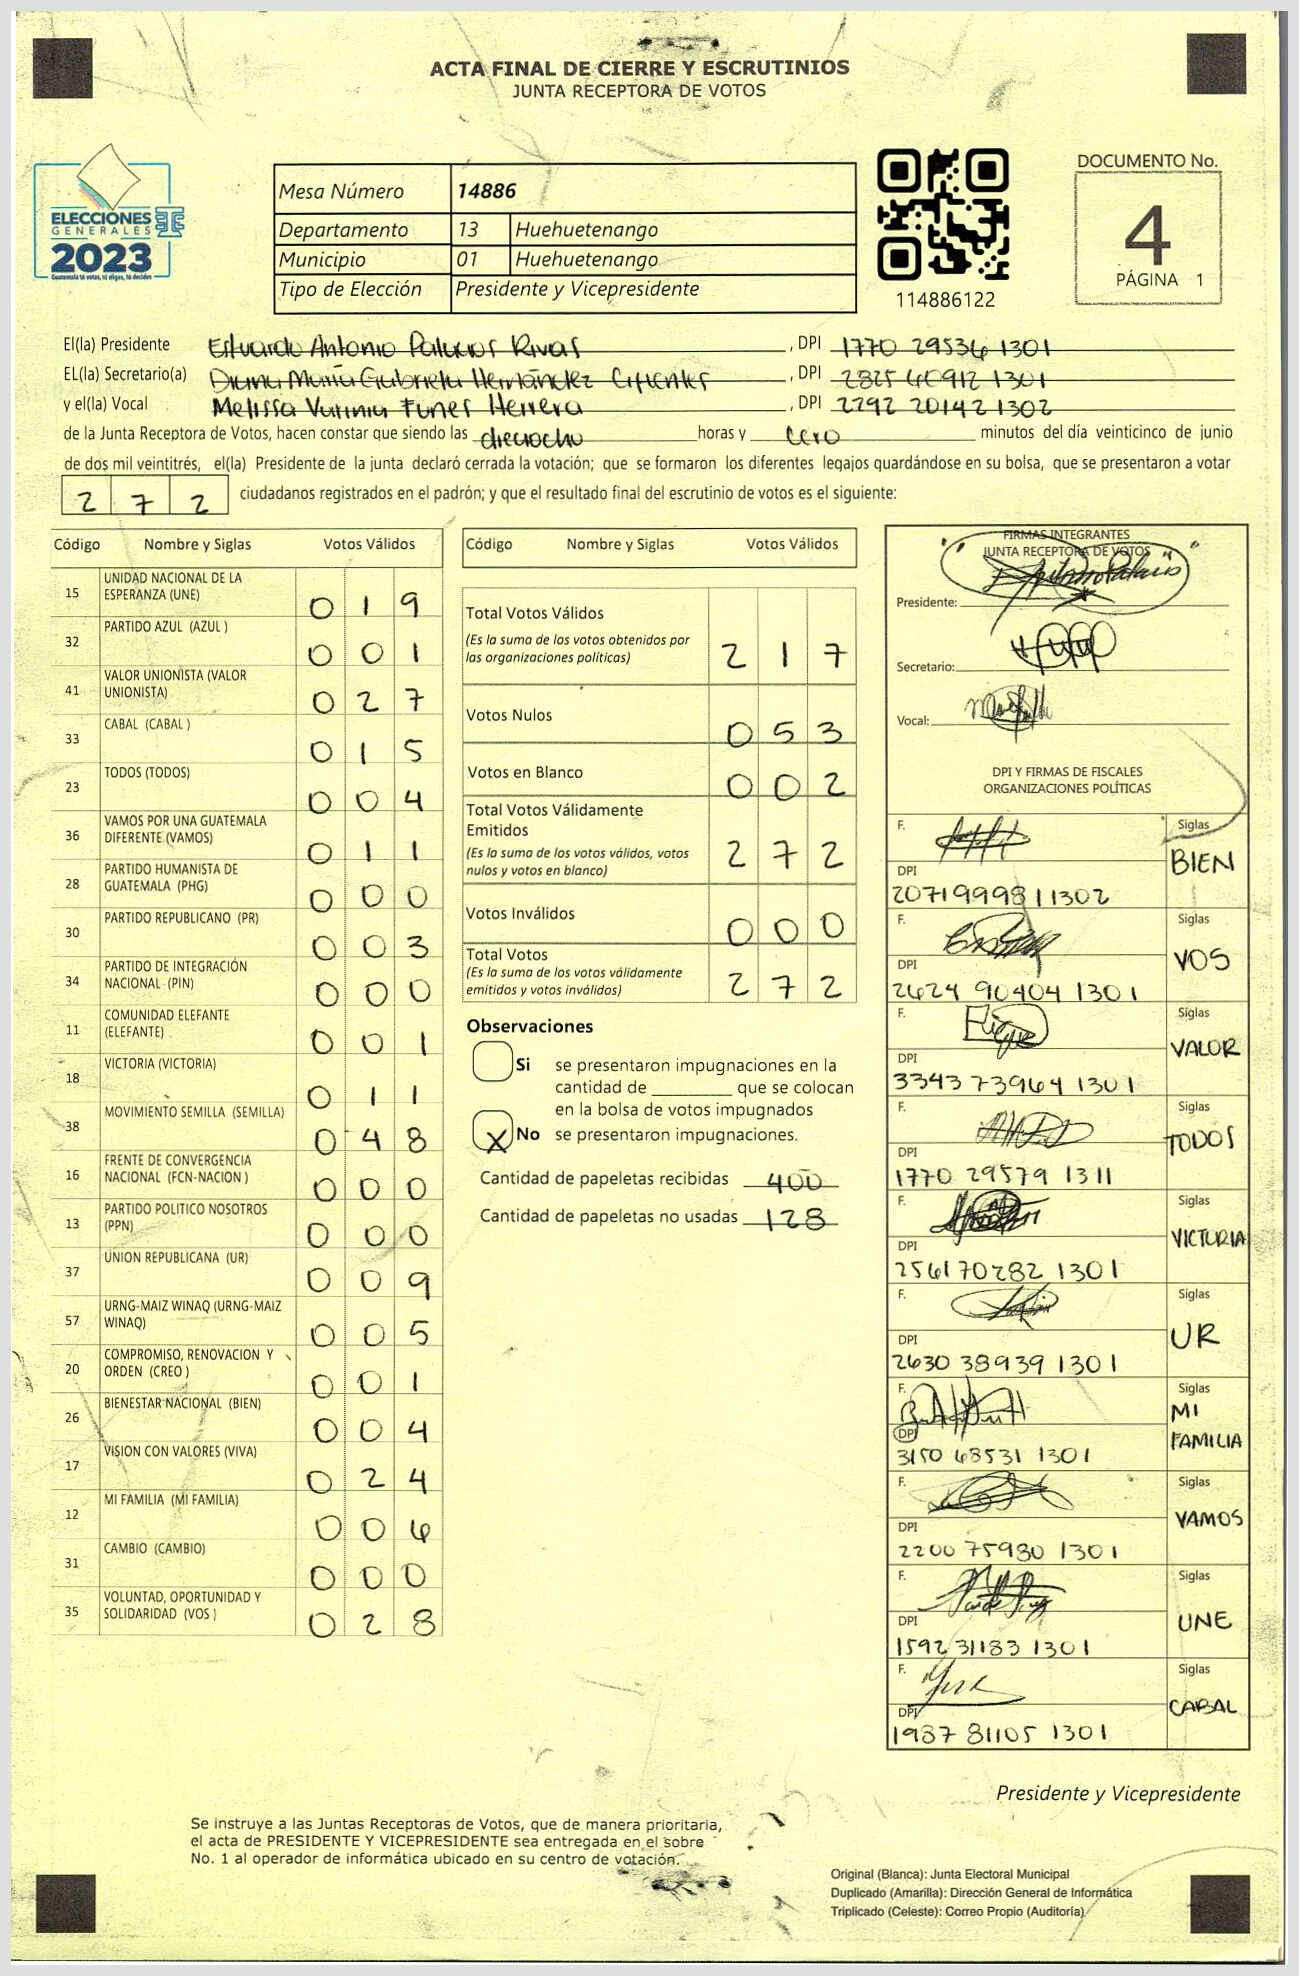 ACTA FINAL DE CIERRE Y ESCRUTINIOS
JUNTA RECEPTORA DE VOTOS
ELECCIONES
GENERALES
2023
Guatemala tú votas, tú eliges, tú decides
Mesa Número 14886
Departamento 13 Huehuetenango
Municipio 01 Huehuetenango
Tipo de Elección Presidente y Vicepresidente
114886122
DOCUMENTO No.
4
PÁGINA 1
El(la) Presidente Estuardo Antonio Palacios Rivas, DPI 1770 29536 1301
EL(la) Secretario(a) Diana María Gabriela Hernández Cifuentes, DPI 2825 40912 1301
y el(la) Vocal Melissa Funes Herrera, DPI 2292 20142 1302
de la Junta Receptora de Votos, hacen constar que siendo las dieciocho horas y cero minutos del día veinticinco de junio
de dos mil veintitrés, el(la) Presidente de la junta declaró cerrada la votación; que se formaron los diferentes legajos guardándose en su bolsa, que se presentaron a votar
272 ciudadanos registrados en el padrón; y que el resultado final del escrutinio de votos es el siguiente:
Código Nombre y Siglas Votos Válidos
15 UNIDAD NACIONAL DE LA ESPERANZA (UNE) 019
32 PARTIDO AZUL (AZUL ) 001
41 VALOR UNIONISTA (VALOR UNIONISTA) 027
33 CABAL (CABAL ) 015
23 TODOS (TODOS) 004
36 VAMOS POR UNA GUATEMALA DIFERENTE (VAMOS) 011
28 PARTIDO HUMANISTA DE GUATEMALA (PHG) 000
30 PARTIDO REPUBLICANO (PR) 003
34 PARTIDO DE INTEGRACIÓN NACIONAL (PIN) 000
11 COMUNIDAD ELEFANTE (ELEFANTE) 001
18 VICTORIA (VICTORIA) 011
38 MOVIMIENTO SEMILLA (SEMILLA) 048
16 FRENTE DE CONVERGENCIA NACIONAL (FCN-NACION ) 000
13 PARTIDO POLITICO NOSOTROS (PPN) 000
37 UNION REPUBLICANA (UR) 009
57 URNG-MAIZ WINAQ (URNG-MAIZ WINAQ) 005
20 COMPROMISO, RENOVACION Y ORDEN (CREO ) 001
26 BIENESTAR NACIONAL (BIEN) 004
17 VISION CON VALORES (VIVA) 024
12 MI FAMILIA (MI FAMILIA) 006
31 CAMBIO (CAMBIO) 000
35 VOLUNTAD, OPORTUNIDAD Y SOLIDARIDAD (VOS ) 028
Código Nombre y Siglas Votos Válidos
Total Votos Válidos
(Es la suma de los votos obtenidos por
las organizaciones políticas) 217
Votos Nulos 053
Votos en Blanco 002
Total Votos Válidamente
Emitidos
(Es la suma de los votos válidos, votos
nulos y votos en blanco) 272
Votos Inválidos 000
Total Votos
(Es la suma de los votos válidamente
emitidos y votos inválidos) 272
Observaciones
Si se presentaron impugnaciones en la
cantidad de ________ que se colocan
en la bolsa de votos impugnados
X No se presentaron impugnaciones.
Cantidad de papeletas recibidas 400
Cantidad de papeletas no usadas 128
FIRMAS INTEGRANTES
JUNTA RECEPTORA DE VOTOS
Presidente:
Secretario:
Vocal:
DPI Y FIRMAS DE FISCALES
ORGANIZACIONES POLÍTICAS
F. Siglas BIEN
DPI
2071999811302
F. Siglas VOS
DPI
2624 90404 1301
F. Siglas VALOR
DPI
3343 73964 1301
F. Siglas TODOS
DPI
1770 29579 1311
F. Siglas VICTORIA
DPI
2561 70282 1301
F. Siglas UR
DPI
2630 38939 1301
F. Siglas MI FAMILIA
DPI
3150 68531 1301
F. Siglas VAMOS
DPI
2200 75980 1301
F. Siglas UNE
DPI
1592 31183 1301
F. Siglas CABAL
DPI
1987 81105 1301
Presidente y Vicepresidente
Se instruye a las Juntas Receptoras de Votos, que de manera prioritaria,
el acta de PRESIDENTE Y VICEPRESIDENTE sea entregada en el sobre
No. 1 al operador de informática ubicado en su centro de votación.
Original (Blanca): Junta Electoral Municipal
Duplicado (Amarilla): Dirección General de Informática
Triplicado (Celeste): Correo Propio (Auditoría)